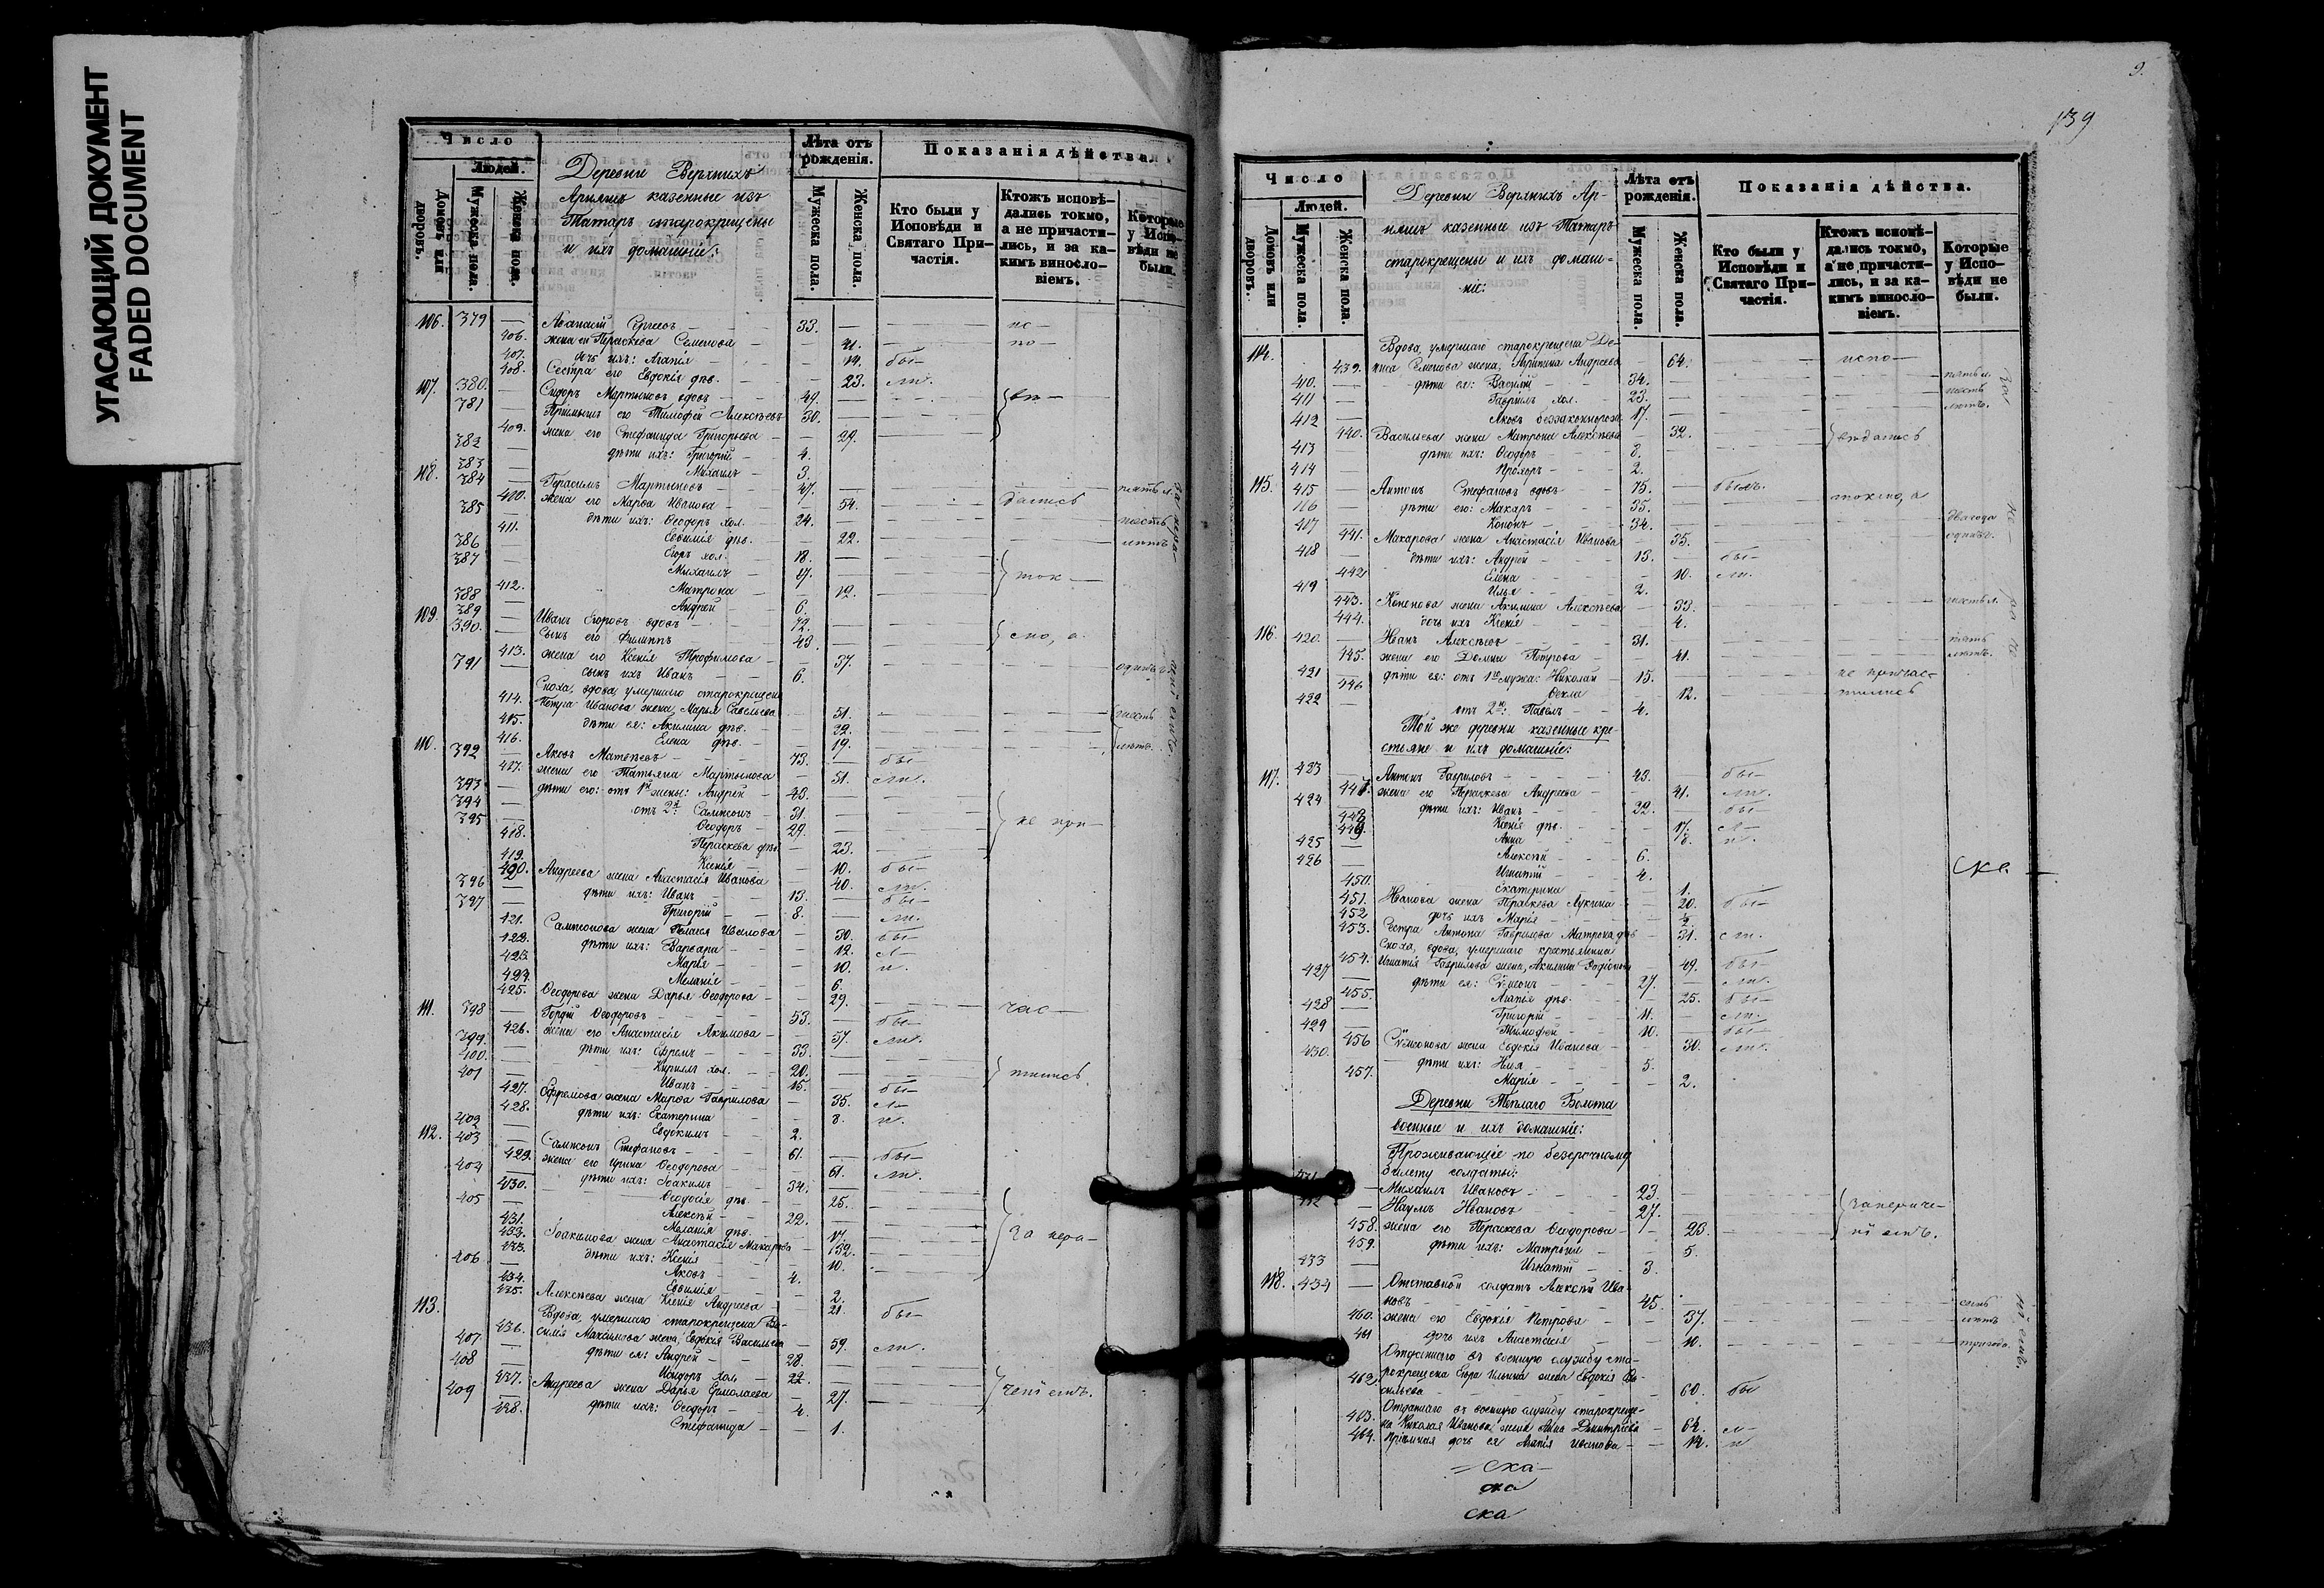 УГАСАЮЩИЙ ДОКУМЕНТ
FADED DOCUMENT
Число
Людей.
Домовъ или дворовъ.
Мужеска пола.
Женска пола.
Деревни Верхнихъ
казенные изъ
Татаръ старокрещены
и ихъ домашніе:
Лѣта отъ рожденія.
Мужеска пола.
Женска пола.
Показанія дѣйства
Кто были у Исповѣди и Святаго Причастія.
Ктожъ исповѣдались токмо, а не причастились, и за какимъ винословіемъ.
Которые у Исповѣди не были.
106. 379 — Аѳанасій Сергѣевъ 33.
406. жена его Параскева Семенова 41.
407. дочь ихъ: Агапія 14. бы—
408. Сестра его Евдокія дѣв. 23. ли.
107. 380. Сидоръ Мартыновъ вдовъ 49.
381 Пріимышъ его Тимоѳей Алексѣевъ 30.
409. жена его Стефанида Григорьева 29.
382 дѣти ихъ: Григорій 4.
383 Михаилъ 3.
108. 384 Герасимъ Мартыновъ 47.
410. жена его Марѳа Иванова 54.
385 дѣти ихъ: Ѳеодоръ хол. 24.
411. Евѳимія дѣв. 22.
386 Егоръ хол. 18.
387 Михаилъ 17.
412. Матрона 12.
388 Андрей 6.
109. 389 Иванъ Егоровъ вдовъ 72.
390. Сынъ его Филиппъ 43.
413. жена его Ксенія Трофимова 37.
391 сынъ ихъ Иванъ 6.
Сноха, вдова умершаго старокрещена
414. Петра Иванова жена, Марья Савельева 51.
415. дѣти ея: Акилина дѣв. 22.
416. Елена дѣв. 19.
110. 392 Яковъ Матвѣевъ 73. бы—
417. жена его Татьяна Мартынова 51. ли.
393 дѣти его: отъ 1й жены: Андрей 43.
394 отъ 2й: Сампсонъ 31.
395 Ѳеодоръ 29.
418. Параскева дѣв. 23.
419. Ксенія 10. бы—
420. Андреева жена Анастасія Иванова 40. ли.
396 дѣти ихъ: Иванъ 13. бы—
397 Григорій 8. ли.
421. Сампсонова жена Пелагея 30. бы—
422. дѣти ихъ: Варвара 12. л—
423. Марія 10. и.
424. Меланія 6.
425. Ѳеодорова жена Дарья Ѳеодорова 29. час—
111. 398 Гордій Ѳеодоровъ 53. бы—
426. жена его Анастасія Акимова 57. ли.
399. дѣти ихъ: Ефремъ 33.
400. Кириллъ хол. 20.
401 Иванъ 15. бы—
427. Ефремова жена Марѳа Гаврилова 35. л—
428. дѣти ихъ: Екатерина 8. и.
402 Евдокимъ 2.
112. 403 Сампсонъ Стефановъ 61. бы—
429. жена его Ирина Ѳеодорова 61. ли.
404 дѣти ихъ: Іоакимъ 34.
430. Ѳеодосія дѣв. 25.
405 Алексѣй 22.
431. Меланія дѣв. 17.
432. Іоакимова жена Анастасія Макарова 32.
433. дѣти ихъ: Ксенія 10.
406 Яковъ 4.
434. Евѳимія 2.
435. Алексѣева жена Ксенія Андреева 21. бы—
113. Вдова, умершаго старокрещена Ва-
436. силія Максимова жена, Евдокія Васильева 59. ли.
407 дѣти ея: Андрей 28.
408 Исидоръ хол. 22.
437. Андреева жена Дарья Ермолаева 27.
409 дѣти ихъ: Ѳеодоръ 4.
438. Стефанида 1.
9.
139
Число
Людей.
Домовъ или дворовъ.
Мужеска пола.
Женска пола.
Деревни Верхнихъ Ар-
казенные изъ Татаръ
старокрещены и ихъ домаш-
ніе:
Лѣта отъ рожденія.
Мужеска пола.
Женска пола.
Показанія дѣйства.
Кто были у Исповѣди и Святаго Причастія.
Ктожъ исповѣдались токмо, а не причастились, и за какимъ винословіемъ.
Которые у Исповѣди не были.
114. Вдова, умершаго старокрещена Де-
439. ниса Семенова жена, Агрипина Андреева 64. испо—
410. дѣти ея: Василій 34.
411 Гавріилъ хол. 23.
412 Яковъ беззаконнорож. 17.
440. Васильева жена Матрона Алексѣева 32.
413 дѣти ихъ: Ѳеодоръ 8.
414 Прохоръ 2.
115. 415 Антонъ Стефановъ вдовъ 75. былъ.
416 дѣти его: Макаръ 35. токмо, а
417 Кононъ 34.
441. Макарова жена Анастасія Иванова 35.
418 дѣти ихъ: Андрей 13. бы—
442 Елена 10. ли.
419 Илья 2.
443. Кононова жена Акилина Алексѣева 33.
444. дочь ихъ Ксенія 4.
116. 420. Иванъ Алексѣевъ 31.
445. жена его Домна Петрова 41.
421 дѣти ея: отъ 1го мужа: Николай 15. не причас—
446 Ѳекла 12. тились
422 отъ 2го: Павелъ 4.
Той же деревни казенные кре-
стьяне и ихъ домашніе:
117. 423 Антонъ Гавриловъ 43. бы—
447. жена его Параскева Андреева 41. ли.
424 дѣти ихъ: Иванъ 22. бы—
448 Ксенія дѣв. 17. л—
449. Анна 8. и.
425 Алексѣй 6.
426 Игнатій 4.
450. Екатерина 1.
451. Иванова жена Параскева Лукина 20. бы—
452 дочь ихъ Марія ½
453. Сестра Антона Гаврилова Матрона дѣв 31. ли.
Сноха, вдова, умершаго крестьянина
454. Игнатія Гаврилова жена, Акилина Родіонова 49. бы—
427 дѣти ея: Сѵмеонъ 27. ли.
455. Агапія дѣв. 25. бы—
428 Григорій 11. ли.
429 Тимоѳей 10. бы—
456 Сѵмеонова жена Евдокія Иванова 30. ли.
430. дѣти ихъ: Илья 5.
457. Марія 2.
Деревни Теплаго Болота
военные и ихъ домашніе:
Проживающіе по безсрочному
билету солдаты:
Михаилъ Ивановъ 23.
Наумъ Ивановъ 27.
458. жена его Параскева Ѳеодорова 23.
459. дѣти ихъ: Матрона 5.
433 Игнатій 3.
118. 434 Отставной солдатъ Алексѣй Ива-
новъ 45.
460. жена его Евдокія Петрова 37.
461 дочь ихъ Анастасія 10.
Отданнаго въ военную службу ста-
462. рокрещена Егора Ильина жена Евдокія Ва-
сильева 60. бы
Отданнаго въ военную службу старокреще-
463. на Николая Иванова жена Анна Димитріева 64. л—
464. Пріемная дочь ея Агапія Иванова 14. и
ска
ска
ска